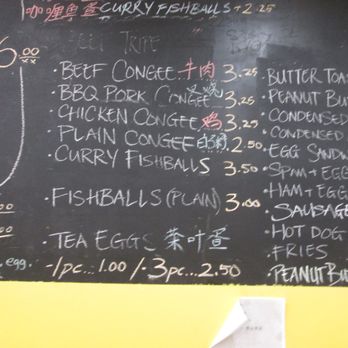 咖喱鱼蛋 CURRY FISHBALLS + 2.25
BEEF TRIPE
6.00
• BEEF CONGEE 牛肉 3.25
• BBQ PORK CONGEE 叉烧 3.25
• CHICKEN CONGEE 鸡 3.25
• PLAIN CONGEE 白粥 2.50
• CURRY FISHBALLS 3.50
• FISHBALLS (PLAIN) 3.00
• TEA EGGS 茶叶蛋
egg. - 1pc... 1.00 / - 3pc... 2.50
• BUTTER TOA
• PEANUT BU
• CONDENSED
• CONDENSED
• EGG SANDW
• SPAM + EGG
• HAM + EGG
• SAUSAGE
• HOT DOG
• FRIES
• PEANUT BU